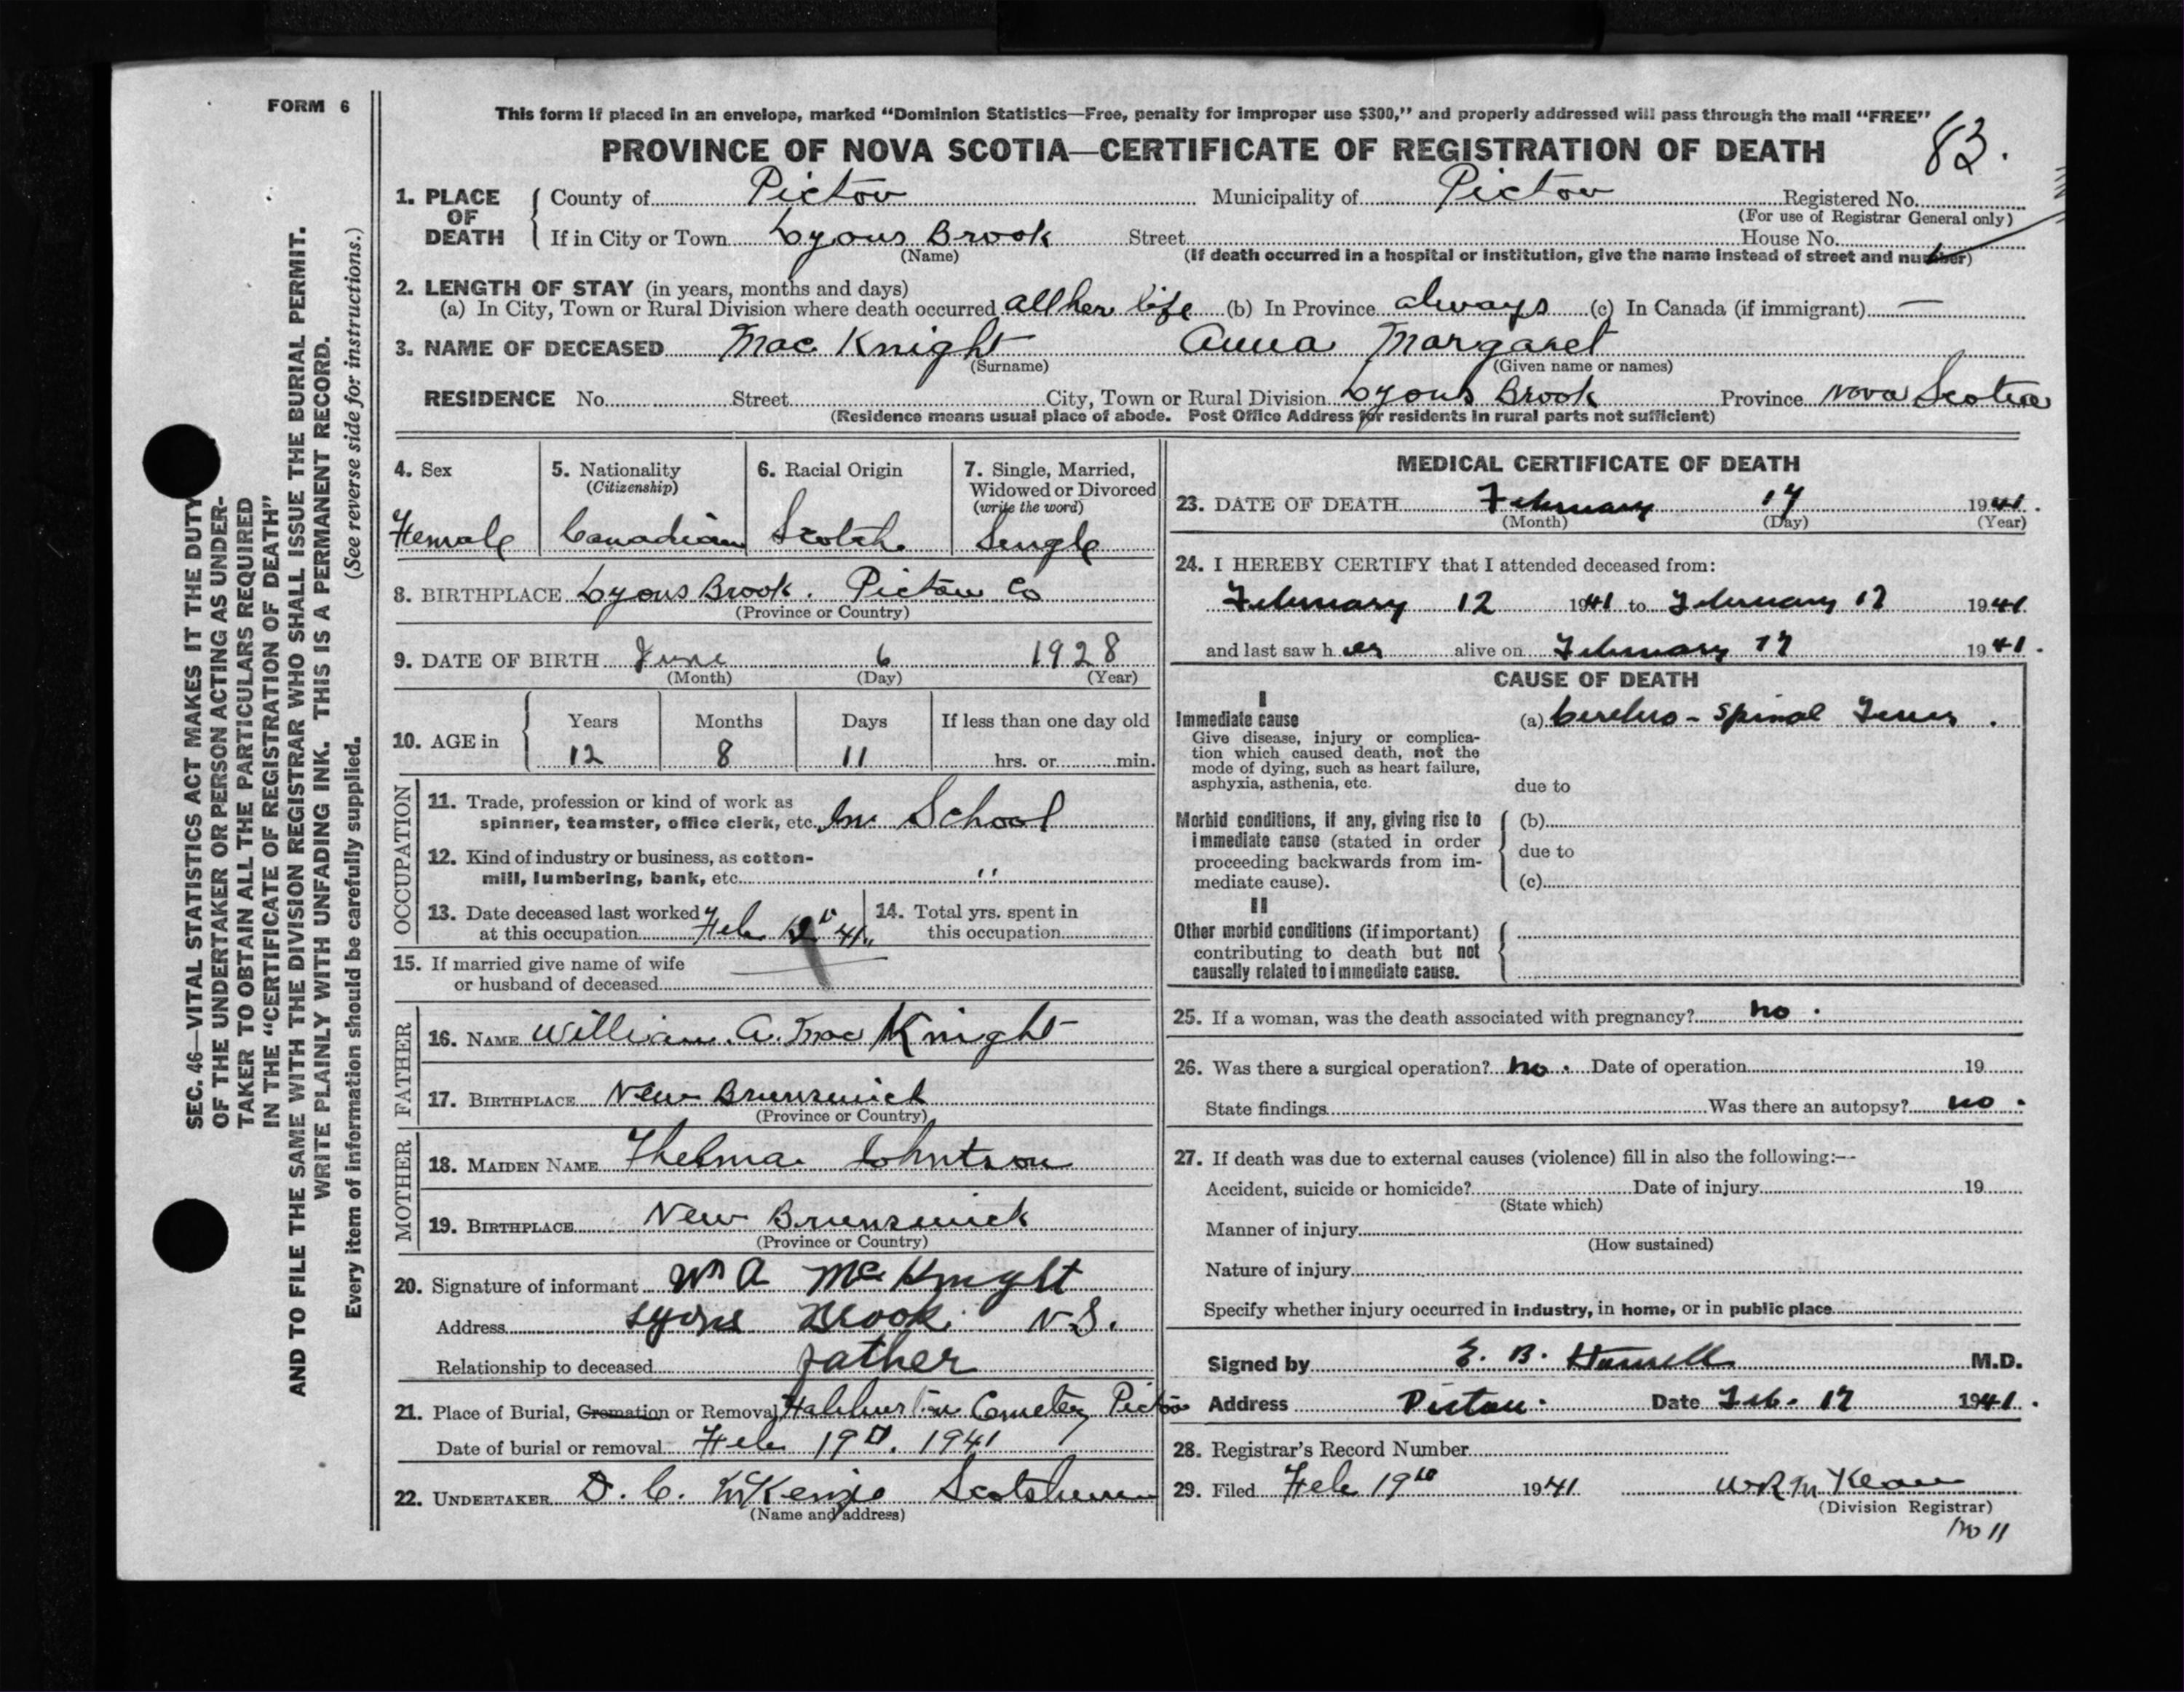 FORM 6
This form if placed in an envelope, marked “Dominion Statistics—Free, penalty for improper use $300,” and properly addressed will pass through the mail “FREE”
83.
PROVINCE OF NOVA SCOTIA—CERTIFICATE OF REGISTRATION OF DEATH
1. PLACE OF DEATH
County of Pictou Municipality of Pictou Registered No.
(For use of Registrar General only)
If in City or Town Lyons Brook Street House No.
(Name) (If death occurred in a hospital or institution, give the name instead of street and number)
2. LENGTH OF STAY (in years, months and days)
(a) In City, Town or Rural Division where death occurred all her life (b) In Province always (c) In Canada (if immigrant) —
3. NAME OF DECEASED MacKnight Anna Margaret
(Surname) (Given name or names)
RESIDENCE No. Street City, Town or Rural Division Lyons Brook Province Nova Scotia
(Residence means usual place of abode. Post Office Address for residents in rural parts not sufficient)
4. Sex
Female
5. Nationality
(Citizenship)
Canadian
6. Racial Origin
Scotch
7. Single, Married,
Widowed or Divorced
(write the word)
Single
8. BIRTHPLACE Lyons Brook. Pictou Co
(Province or Country)
9. DATE OF BIRTH June 6 1928
(Month) (Day) (Year)
10. AGE in
Years Months Days If less than one day old
12 8 11 hrs. or min.
OCCUPATION
11. Trade, profession or kind of work as
spinner, teamster, office clerk, etc. In School
12. Kind of industry or business, as cotton-
mill, lumbering, bank, etc. "
13. Date deceased last worked
at this occupation Feb 12 41
14. Total yrs. spent in
this occupation
15. If married give name of wife
or husband of deceased
FATHER
16. NAME William A. MacKnight
17. BIRTHPLACE New Brunswick
(Province or Country)
MOTHER
18. MAIDEN NAME Thelma Johntson
19. BIRTHPLACE New Brunswick
(Province or Country)
20. Signature of informant Wm A McKnight
Address Lyons Brook. N.S.
Relationship to deceased father
21. Place of Burial, Cremation or Removal Haliburton Cemetery Pictou
Date of burial or removal Feb 19 1941
22. UNDERTAKER D. C. McKenzie Scotsburn
(Name and address)
MEDICAL CERTIFICATE OF DEATH
23. DATE OF DEATH February 17 1941.
(Month) (Day) (Year)
24. I HEREBY CERTIFY that I attended deceased from:
February 12 1941 to February 17 1941
and last saw her alive on February 17 1941.
CAUSE OF DEATH
I
Immediate cause (a) Cerebro-Spinal Fever.
Give disease, injury or complica-
tion which caused death, not the
mode of dying, such as heart failure,
asphyxia, asthenia, etc. due to
Morbid conditions, if any, giving rise to (b)
immediate cause (stated in order
proceeding backwards from im- due to
mediate cause). (c)
II
Other morbid conditions (if important)
contributing to death but not
causally related to immediate cause.
25. If a woman, was the death associated with pregnancy? no.
26. Was there a surgical operation? no. Date of operation 19
State findings Was there an autopsy? no.
27. If death was due to external causes (violence) fill in also the following:—
Accident, suicide or homicide? Date of injury 19
(State which)
Manner of injury
(How sustained)
Nature of injury
Specify whether injury occurred in industry, in home, or in public place
Signed by E. B. M.D.
Address Pictou. Date Feb. 17 1941.
28. Registrar's Record Number
29. Filed Feb 19 1941
(Division Registrar)
No 11
SEC. 46—VITAL STATISTICS ACT MAKES IT THE DUTY
OF THE UNDERTAKER OR PERSON ACTING AS UNDER-
TAKER TO OBTAIN ALL THE PARTICULARS REQUIRED
IN THE “CERTIFICATE OF REGISTRATION OF DEATH”
AND TO FILE THE SAME WITH THE DIVISION REGISTRAR WHO SHALL ISSUE THE BURIAL PERMIT.
WRITE PLAINLY WITH UNFADING INK. THIS IS A PERMANENT RECORD.
Every item of information should be carefully supplied. (See reverse side for instructions.)